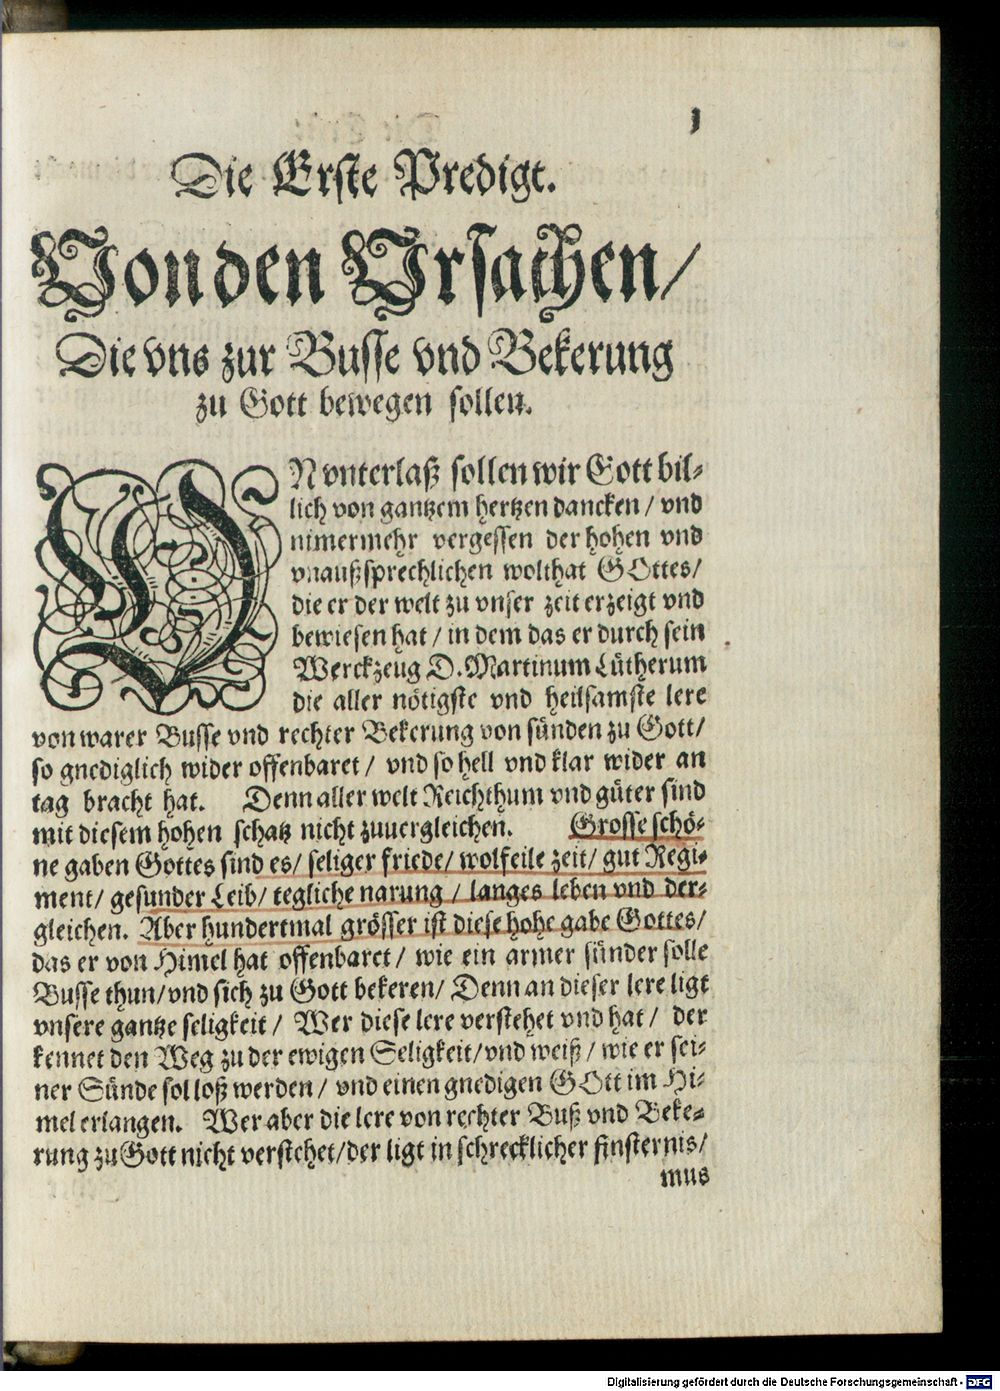 1
Die Erste Predigt.
Von den Vrsachen/
Die vns zur Busse vnd Bekerung
zu Gott bewegen sollen.
VNvnterlaß sollen wir Gott bil-
lich von gantzem hertzen dancken / vnd
nimermehr vergessen der hohen vnd
vnaußsprechlichen wolthat GOttes/
die er der welt zu vnser zeit erzeigt vnd
bewiesen hat / in dem das er durch sein
Werckzeug D. Martinum Lütherum
die aller nötigste vnd heilsamste lere
von warer Busse vnd rechter Bekerung von sünden zu Gott/
so gnediglich wider offenbaret / vnd so hell vnd klar wider an
tag bracht hat. Denn aller welt Reichthum vnd güter sind
mit diesem hohen schatz nicht zuuergleichen. Grosse schö-
ne gaben Gottes sind es/ seliger friede/ wolfeile zeit/ gut Regi-
ment/ gesunder Leib/ tegliche narung / langes leben vnd der-
gleichen. Aber hundertmal grösser ist diese hohe gabe Gottes/
das er von Himel hat offenbaret / wie ein armer sünder solle
Busse thun/vnd sich zu Gott bekeren/ Denn an dieser lere ligt
vnsere gantze seligkeit / Wer diese lere verstehet vnd hat / der
kennet den Weg zu der ewigen Seligkeit/vnd weiß / wie er sei-
ner Sünde sol loß werden / vnd einen gnedigen GOtt im Hi-
mel erlangen. Wer aber die lere von rechter Buß vnd Beke-
rung zu Gott nicht verstehet/der ligt in schrecklicher finsternis/
mus
Digitalisierung gefördert durch die Deutsche Forschungsgemeinschaft - DFG